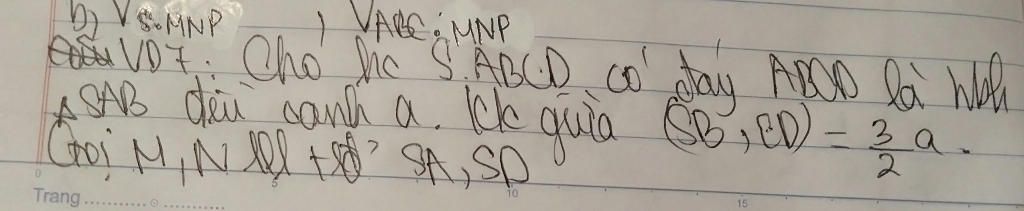 b) V S.MNP , V ABC.MNP
VD7. Cho hc S.ABCD có đáy ABCD là hbh
Δ SAB đều cạnh a. k/c giữa (SB, CD) = 3/2 a.
Gọi M, N SA, SD
Trang
0 5 10 15